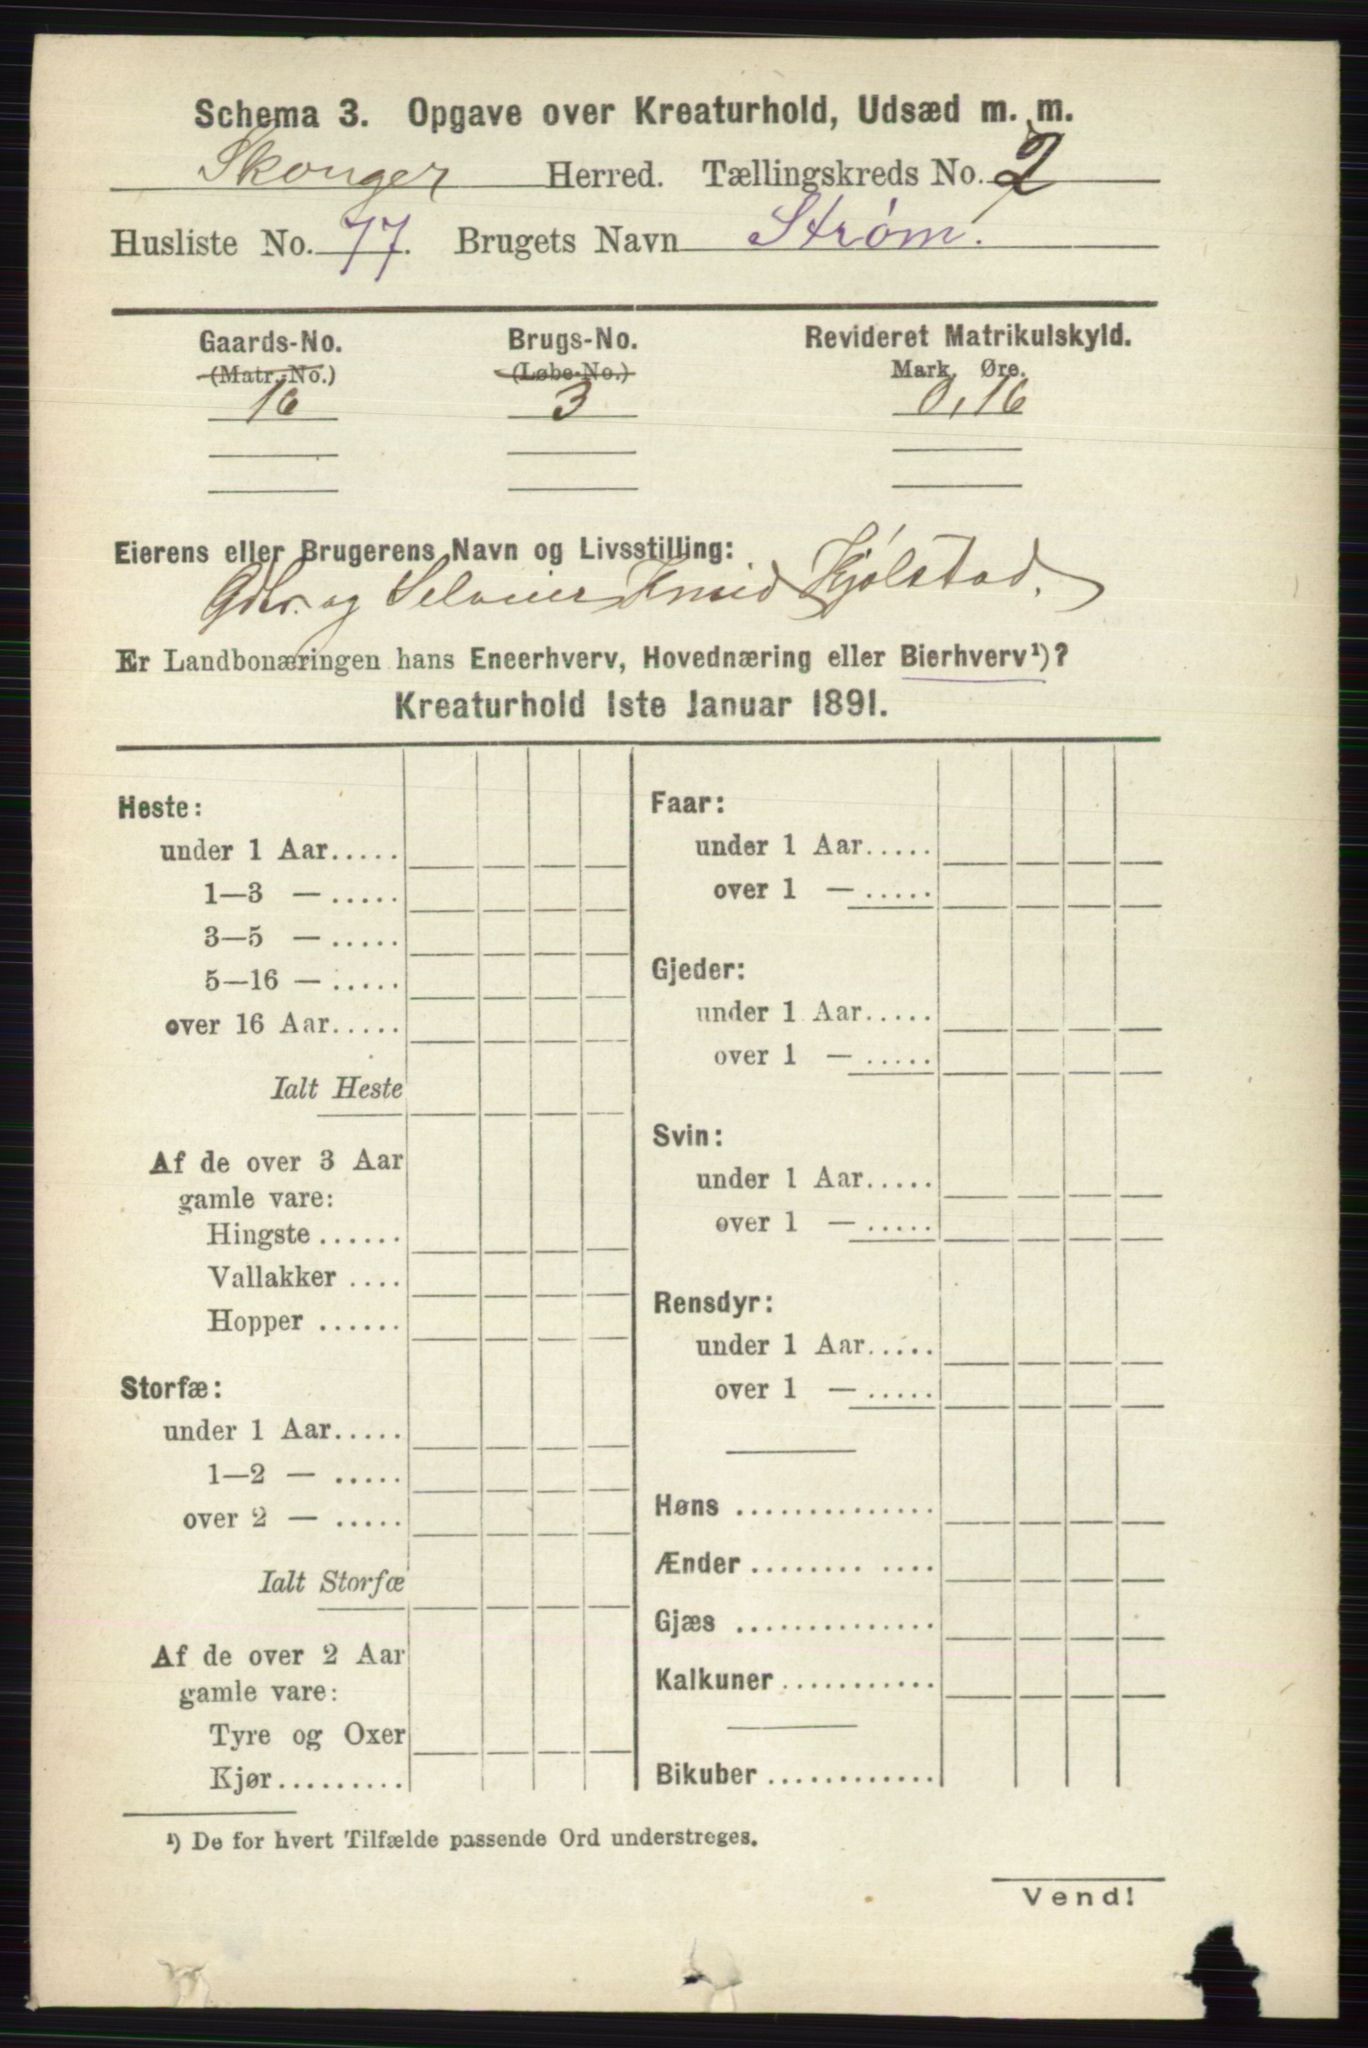 Schema 3. Opgave over Kreaturhold, Udsæd m. m.
Skouger Herred. Tællingskreds No. 2
Husliste No. 77. Brugets Navn Strøm.
Gaards-No. Brugs-No. Revideret Matrikulskyld.
(Matr.-No.) (Løbe-No.) Mark. Øre.
16 3 0,16
Eierens eller Brugerens Navn og Livsstilling:
Gdbr. og Selveier Knud Kjølstad.
Er Landbonæringen hans Eneerhverv, Hovednæring eller Bierhverv¹)?
Kreaturhold 1ste Januar 1891.
Heste:
under 1 Aar.....
1—3 — .....
3—5 — .....
5—16 — .....
over 16 Aar.....
Ialt Heste
Af de over 3 Aar
gamle vare:
Hingste ......
Vallakker ....
Hopper ......
Storfæ:
under 1 Aar.....
1—2 — .....
over 2 — .....
Ialt Storfæ
Af de over 2 Aar
gamle vare:
Tyre og Oxer
Kjør.........
Faar:
under 1 Aar.....
over 1 — .....
Gjeder:
under 1 Aar.....
over 1 — .....
Svin:
under 1 Aar.....
over 1 — .....
Rensdyr:
under 1 Aar.....
over 1 — .....
Høns ..............
Ænder ........ ....
Gjæs ..............
Kalkuner ...........
Bikuber ............
¹) De for hvert Tilfælde passende Ord understreges.
Vend!